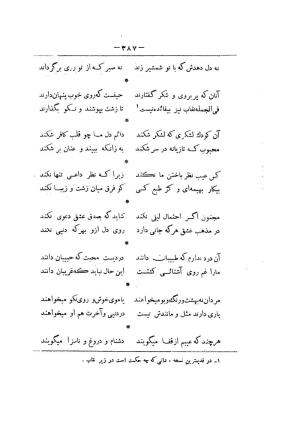 — ۳۸۷ —
نه دل دهدش که با تو شمشیر زند نه سپر که از تو روی برگرداند
*
آنان که پریروی و شکر گفتارند حیفست که روی خوب پنهان دارند
فی‌الجمله نقاب نیز بیفایده نیست¹ تا زشت بپوشند و نکو بگذارند
*
آن کودک لشکری که لشکر شکند دایم دل ما چو قلب کافر شکند
محبوب که تازیانه در سر شکند به زانکه ببیند و عنان بر شکند
*
کس عیب نظر باختن ما نکند زیرا که نظر داعی تنها نکند
بیکار بهیمه‌ای و کژ طبع کسی کو فرق میان زشت و زیبا نکند
*
مجنون اگر احتمال لیلی نکند شاید که بصدق عشق دعوی نکند
در مذهب عشق هر که جانی دارد روی دل ازو بهر که دنیی نکند
*
آنان که طبیبان دانند دردیست محبت که حبیبان دانند
ما را غم روی آشنائی کشتست این حال نباید که غریبان دانند
*
مردان نه بهشت و رنگ و بو میخواهند یا موی خوش و روی نکو میخواهند
یاری دارند مثل و مانندش نیست در دنیی و آخرت هم او میخواهند
*
هر چند که عیبم از قفا میگویند دشنام و دروغ و ناسزا میگویند
۱- در قدیمترین نسخه ، دانی که چه حکمت است در زیر نقاب .